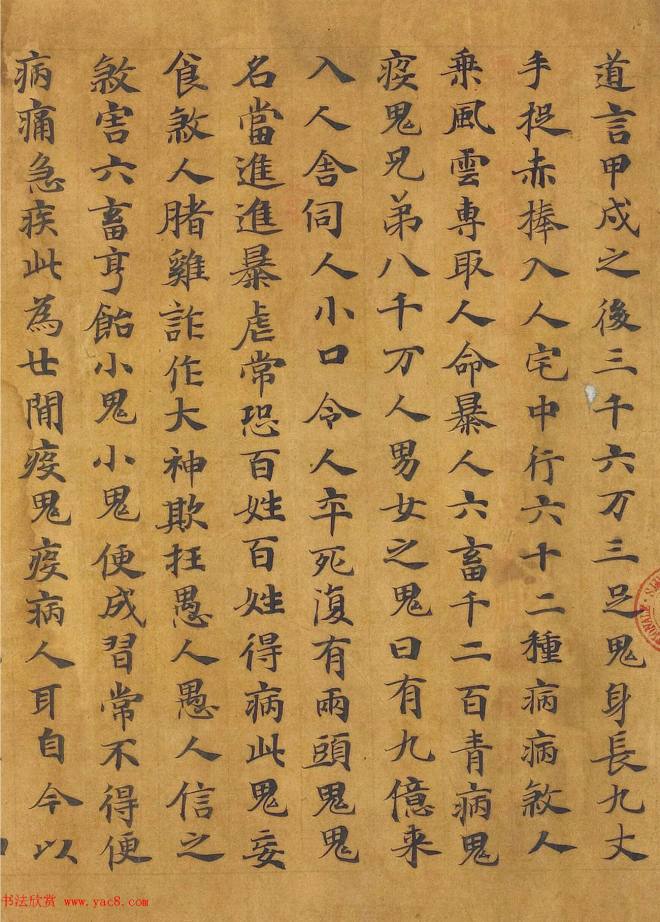 道言甲戌之後三千六万三足鬼身長九丈
手捉赤棒入人宅中行六十二種病病煞人
乗風雲専取人命暴人六畜千二百青病鬼
疫鬼兄弟八千万人男女之鬼曰有九億来
入人舎伺人小口令人卒死復有兩頭鬼鬼
名當進進暴虐常恐百姓百姓得病此鬼妄
食煞人腤雞詐作大神欺抂愚人愚人信之
煞害六畜享飴小鬼小鬼便成習常不得便
病痛急疾此為廿間疫鬼疫病人耳自今以
书法欣赏 www.yac8.com